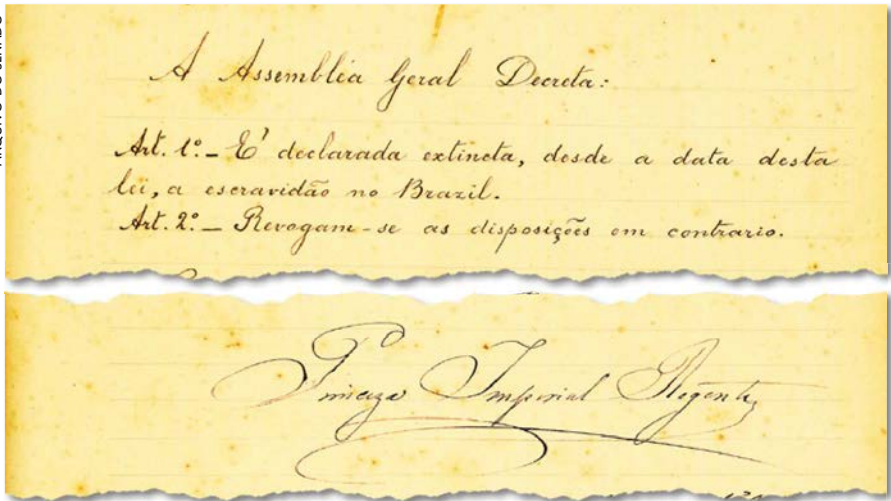 A Assembléa Geral Decreta:
Art. 1º. - E' declarada extincta, desde a data desta
lei, a escravidão no Brazil.
Art. 2º. - Revogam-se as disposições em contrario.
Princeza Imperial Regente